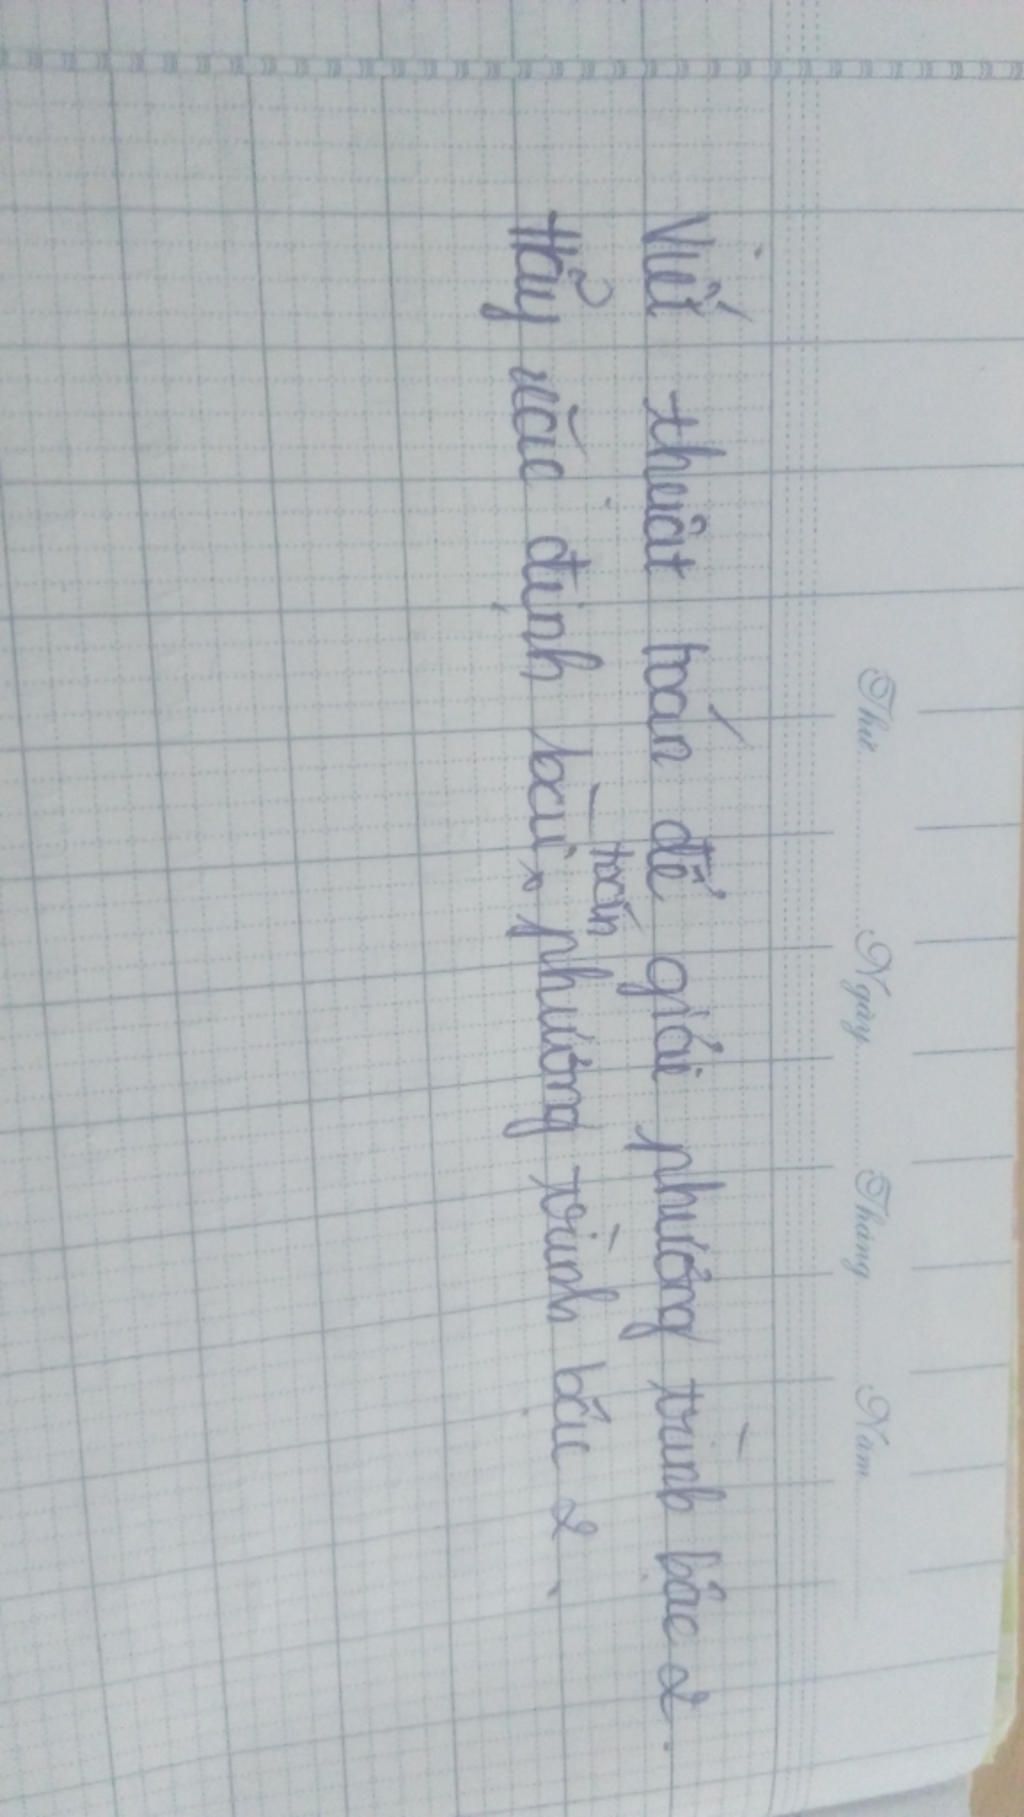 Thứ Ngày Tháng Năm
Viết thuật toán để giải phương trình bậc 2.
Hãy xác định bài toán phương trình bậc 2.